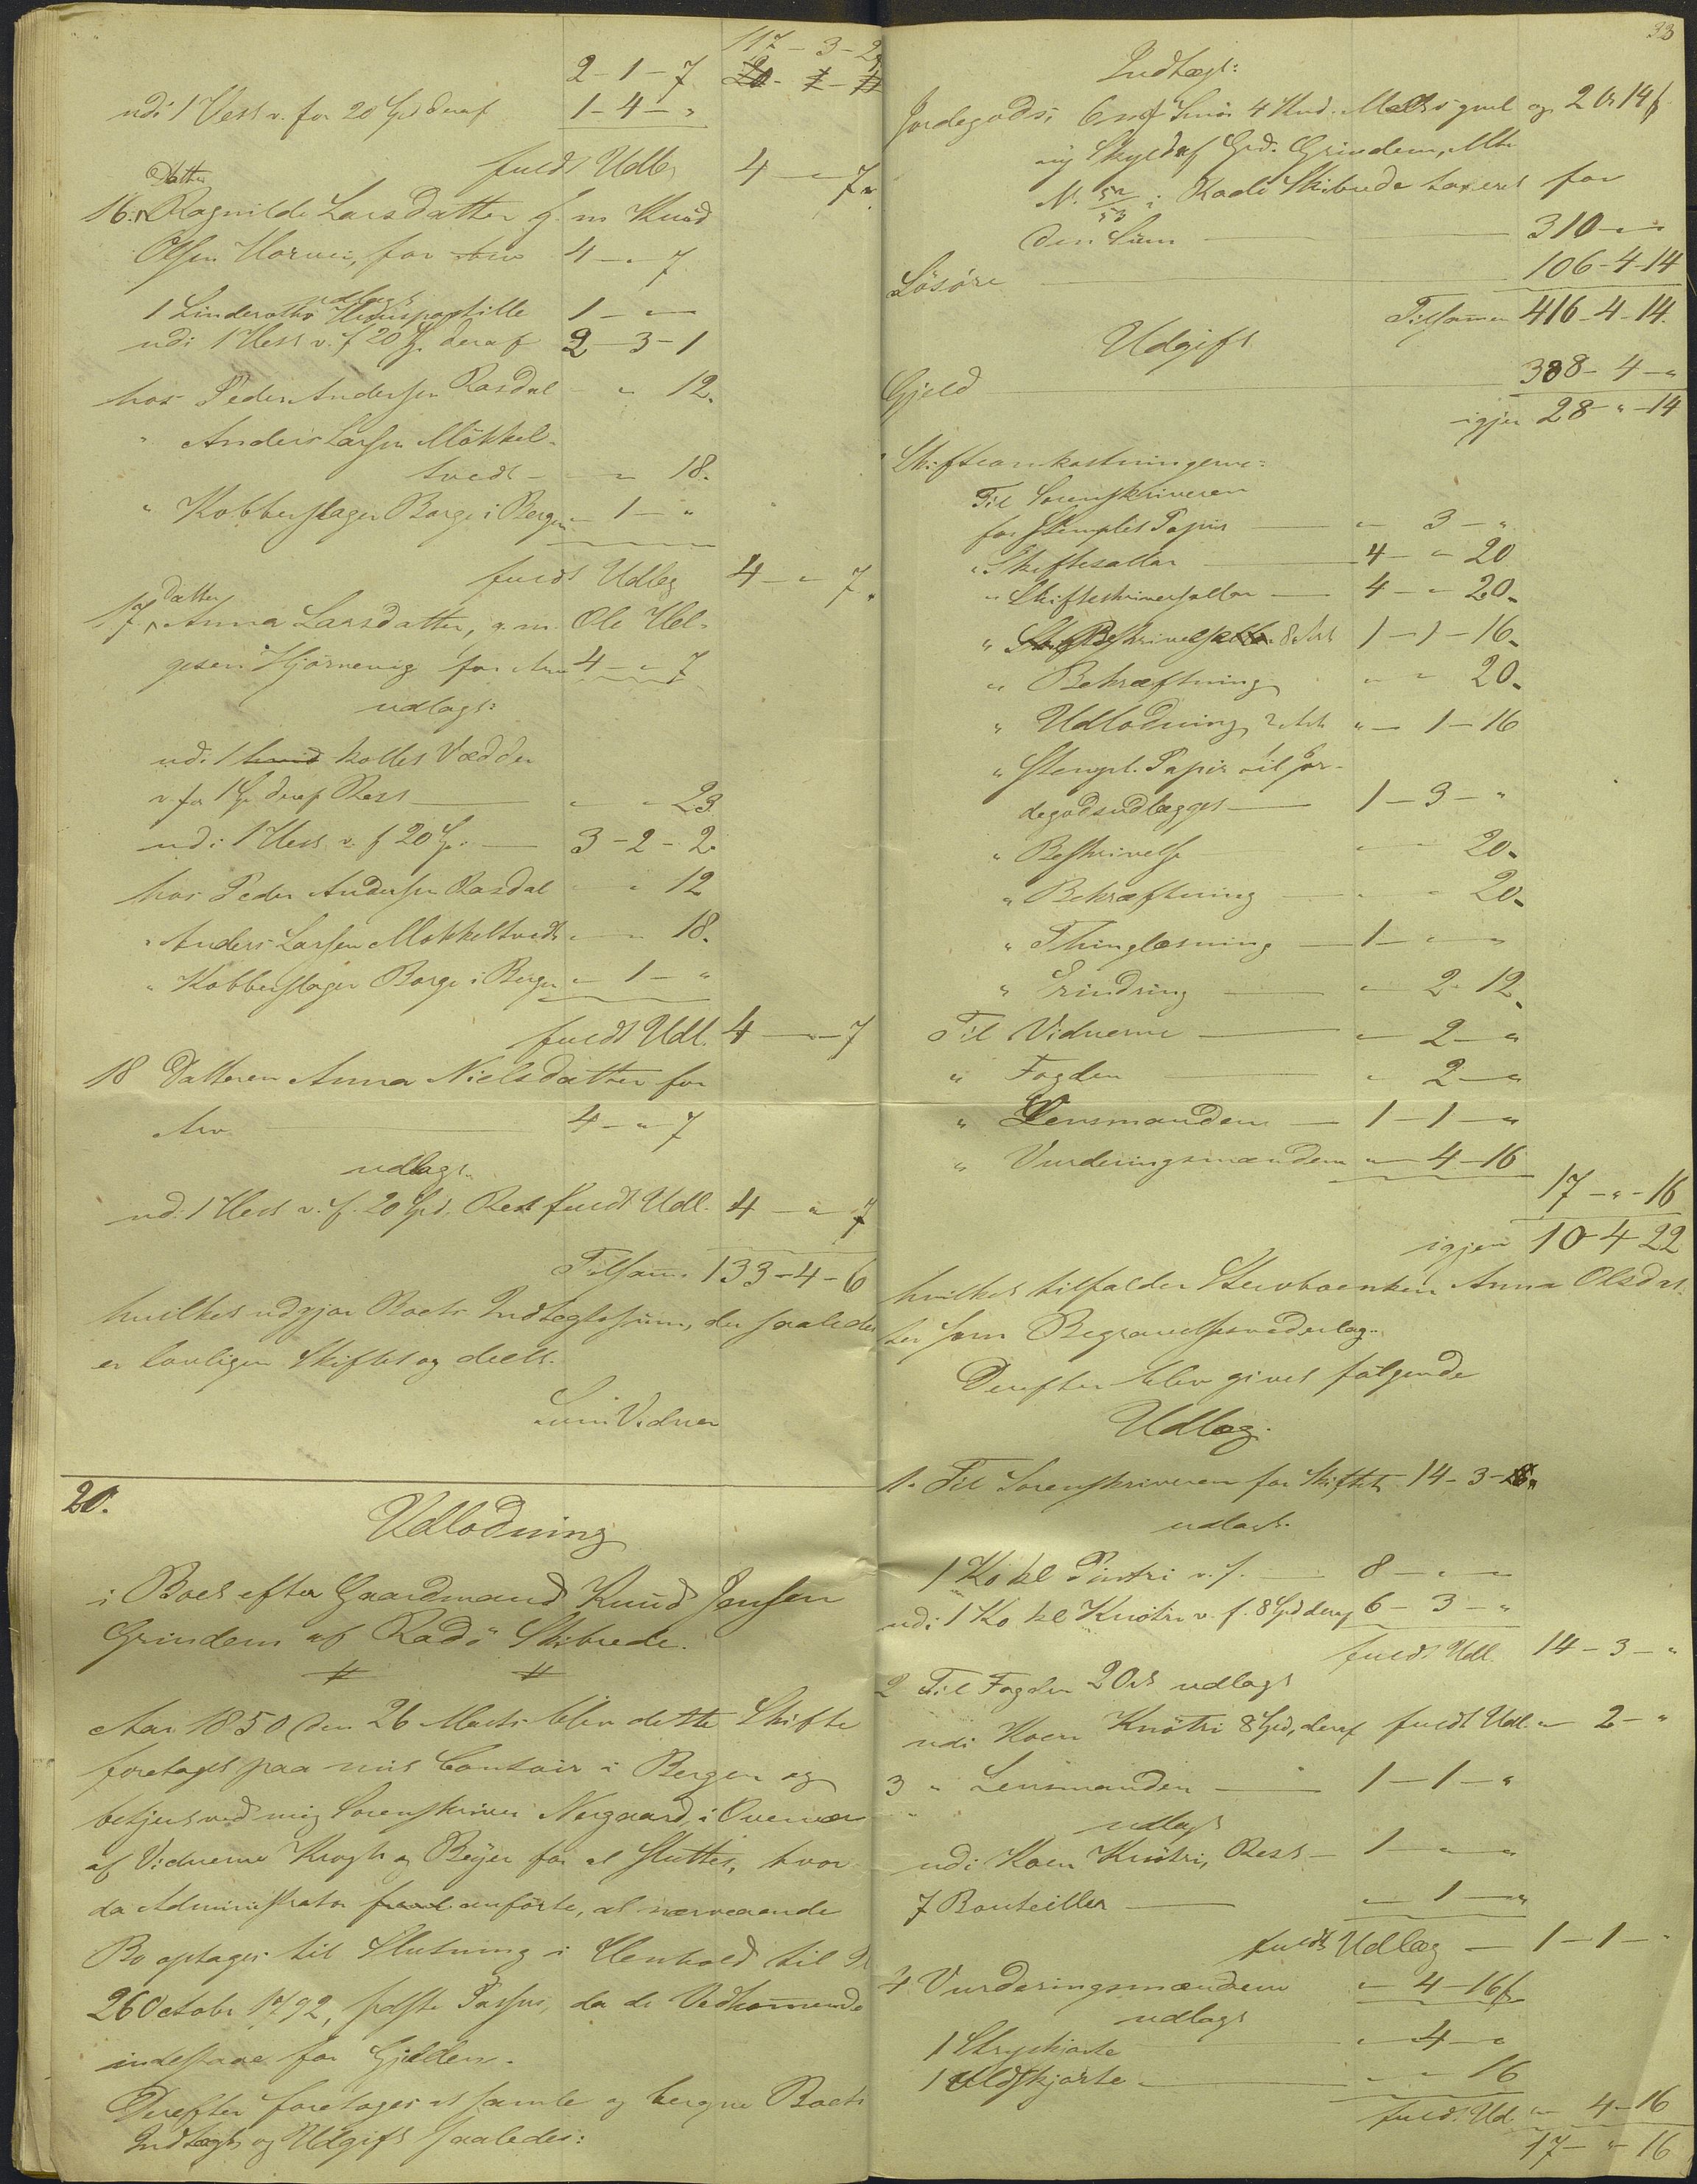 2-1-7 117-3-2
udi 1 Hest v. for 20 Spd deraf 1-4-"
fuldt Udlæg 4-"-7
Datter
16. Ragnilde Larsdatter g. m Knud
Olsen Horvei, for Arv 4-"-7
udlagt
1 Linderoths Huuspostille 1-"-"
udi 1 Hest v. f 20 Sp. deraf 2-3-1
hos Peder Andersen Rosdal " 12.
" Anders Larsen Mökkel-
tvedt - " 18.
" Kobberslager Borge i Bergen - 1-"
fuldt Udlæg 4-"-7.
Datter
17 Anna Larsdatter, g. m. Ole Hel-
gesen Hjörnevig for Arv 4-"-7
udlagt:
udi 1 hvid kollet Vædder
v. for 1 Sp. deraf Rest " - 23
udi 1 Hest v. f 20 Sp. 3-2-2
hos Peder Andersen Rosdal " " 12
" Anders Larsen Mökkeltvedt " " 18.
" Kobberslager Borge i Bergen " 1-"
fuldt Udl. 4-"-7
18 Datteren Anna Nielsdatter for
Arv 4-"-7
udlagt
udi 1 Hest v. f. 20 Spd, Rest fuldt Udl. 4-"-7
Tilsam 133-4-6
hvilket udgjør Boets Indtægtssum, der saaledes
er lovligen Skiftet og deelt.
Vidner
20.
Udlodning
i Boet efter Gaardmand Knud Jensen
Grindem af Radö Skibrede.
Aar 1850 den 26 Marts blev dette Skifte
foretaget paa mit Contoir i Bergen og
betjent ved mig Sorenskriver Norgaard, i Overvær
af Vidnerne Krogh og Beyer for at sluttes, hvor-
da Administrator anførte, at nærværende
Bo optages til Slutning i Henhold til
26 Octobr 1792, sidste Passus, da de Vedkommende
indestaae for Gjelden.
Derefter foretages at samle og beregne Boets
Indtægt og Udgift saaledes:
33
Indtægt:
Jordegods; Smör 4 Hud. Malts gml og 2 Or 14 s
ny Skyld af Grd. Grindem, Mtr
N. 52/53 i Radö Skibrede taxeret for
den Sum 310-"-"
Lösöre 106-4-14
Tilsammen 416-4-14.
Udgift
Gjeld 388-4-"
igjen 28-"-14
Skifteomkostningerne:
Til Sorenskriveren
for stemplet Papir " 3-"
" Skiftesallar 4-"-20
" Skifteskriversallar 4-"-20
" Beskrivelse 8 Ark 1-1-16
" Bekræftning " " 20
" Udlodning, 2 Ark " - 1-16
" Stempl. Papir til Jor-
degodsudlægget 1-3-"
" Beskrivelse " " 20
" Bekræftning " " 20
" Thinglæsning 1-"-"
" Erindring " 2-12
Til Vidnerne " 2-"
" Fogden " 2-"
" Lensmanden 1-1-"
" Vurderingsmændene " 4-16
17-"-16
igjen 10-4-22
hvilket tilfalder Stervboenken Anna Olsdat-
ter som Begravelsesvederlag.
Derefter blev givet fölgende
Udlæg.
1. Til Sorenskriveren for Skiftet 14-3-"
udlagt
1 Ko kl Pintri v. f. 8-"-"
udi 1 Ko kl Knötri v. f. 8 Spd deraf 6-3-"
fuldt Udl. 14-3-"
2 Til Fogden 2 Ort udlagt
udi Koen Knötri 8 Spd, deraf fuldt Udl. " 2-"
3 " Lensmanden 1-1-"
udlagt
udi Koen Knötri, Rest 1-"-"
7 Bouteiller " 1-"
fuldt Udlæg 1-1-"
4 Vurderingsmændene " 4-16 s
udlagt
1 Strieskjorte " 4-"
1 Uldskjorte " " 16
fuldt Ud. " 4-16
17-"-16